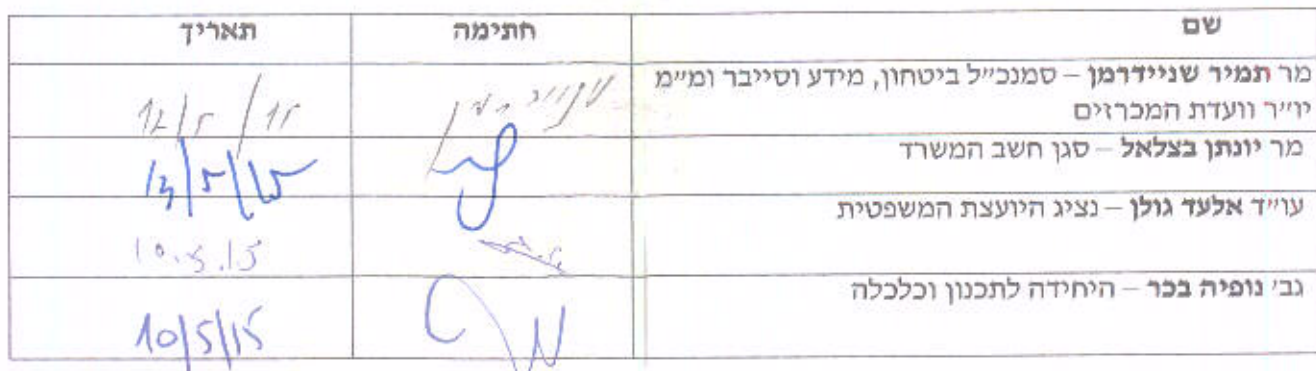 שם חתימה תאריך
מר תמיר שניידרמן – סמנכ״ל ביטחון, מידע וסייבר ומ״מ שניידרמן 12/5/15
יו״ר וועדת המכרזים
מר יונתן בצלאל – סגן חשב המשרד 13/5/15
עו״ד אלעד גולן – נציג היועצת המשפטית
10.5.15
גב׳ נופיה בכר – היחידה לתכנון וכלכלה
10/5/15